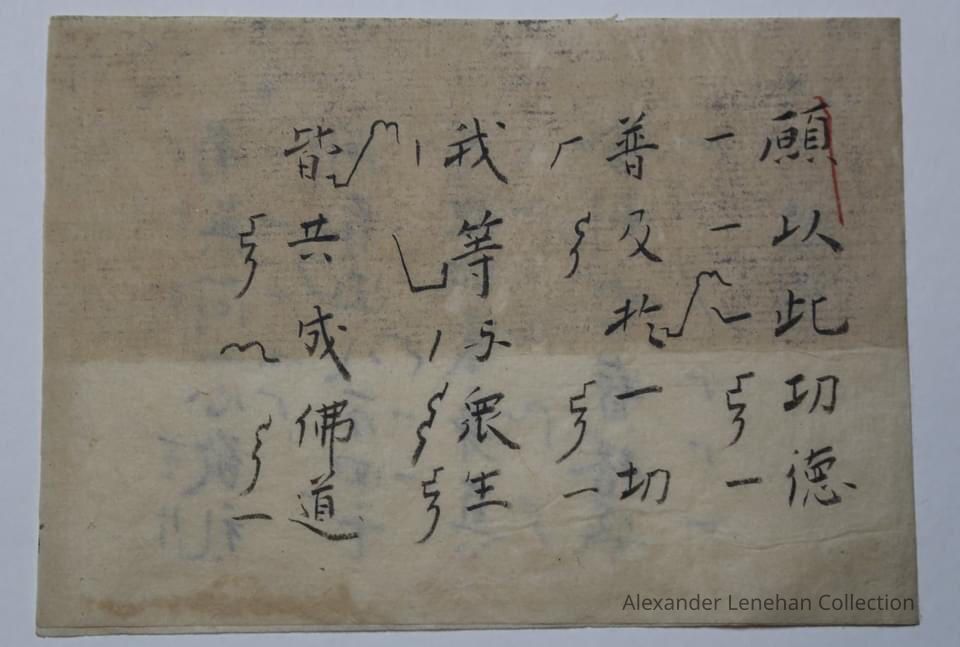 願以此功德
普及於一切
我等与衆生
皆共成佛道
Alexander Lenehan Collection